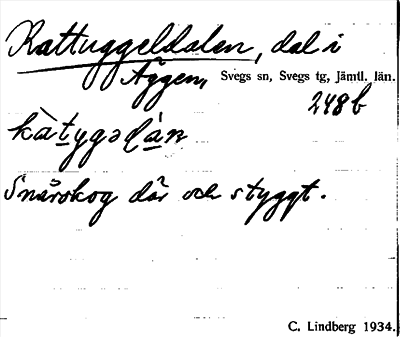 Kattuggeldalen, dal i
Äggen, Svegs sn, Svegs tg, Jämtl. län.
248b
kàtygəldàn
Snårskog där och styggt.
C. Lindberg 1934.